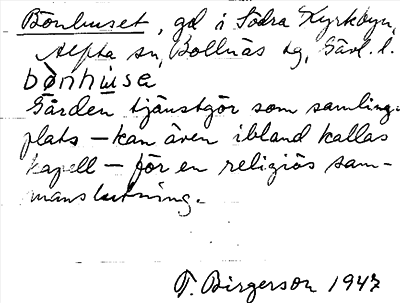 Bönhuset, gd i Södra Kyrkbyn,
Alfta sn, Bollnäs tg, Gävl. l.
bönhuse
Gården tjänstgör som samlings-
plats – kan även ibland kallas
kapell – för en religiös sam-
manslutning.
T. Birgerson 1947